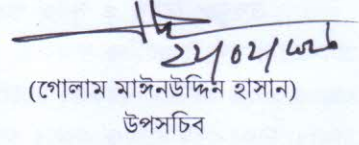 (গোলাম মাঈনউদ্দিন হাসান)
উপসচিব